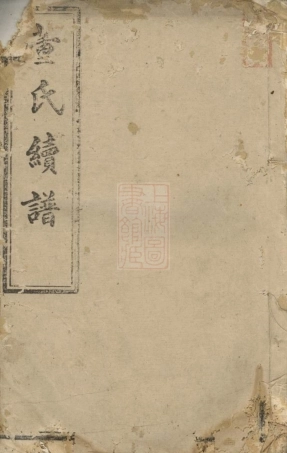 董氏續譜
上海圖
書館藏